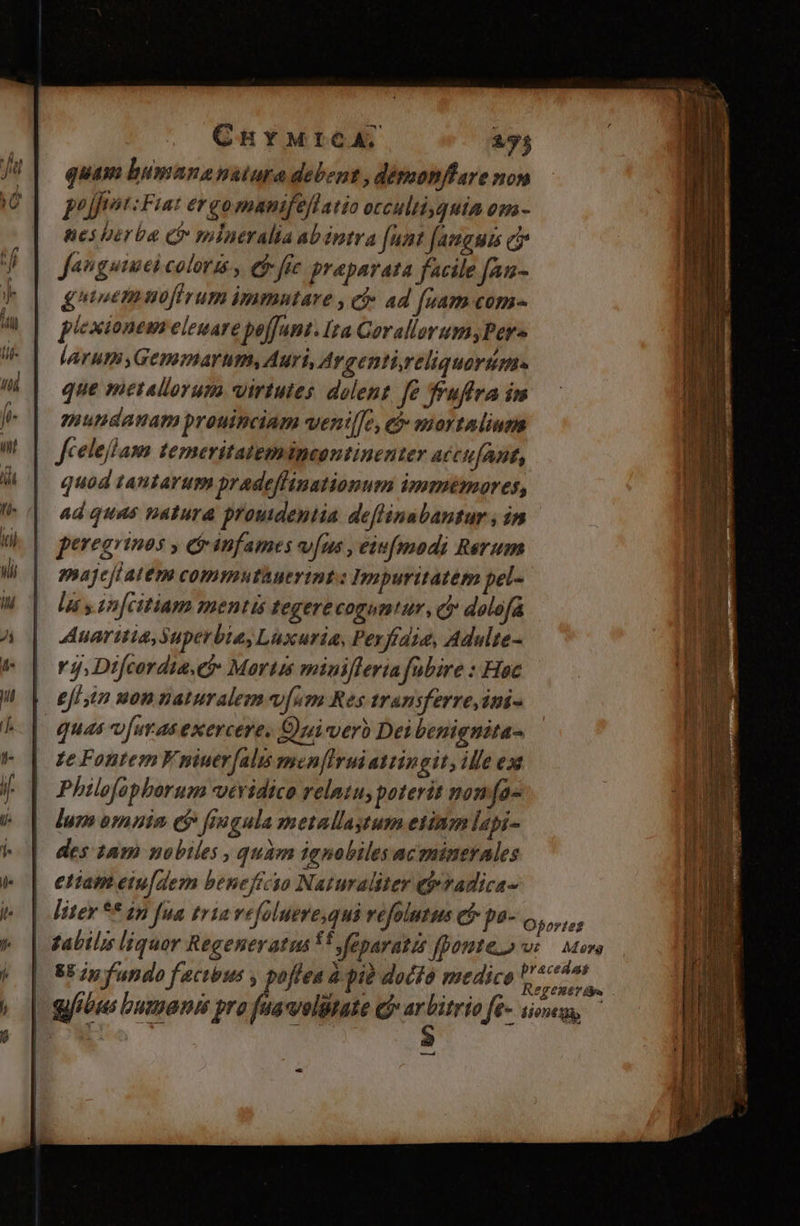 CHYMICA. 273
quam humana natura debent, demonstrare non
possint: Fiat ergo manifestatio occulti, quia om-
nes herba & mineralia ab intra sunt sanguis &
sanguinei coloris, & sic præparata facile san-
guinem nostrum immutare, & ad suam com-
plexionem eleuare possunt. Ita Corallorum, Per-
larum, Gemmarum, Auri, Argenti, reliquorúm-
que metallorum virtutes dolent se frustra in
mundanam prouinciam venisse, & mortalium
scelestam temeritatem incontinenter accusant,
quòd tantarum prædestinationum immemores,
ad quas natura prouidentia destinabantur, in
peregrinos, & infames vsus, eiusmodi Rerum
majestatem commutauerint: Impuritatem pel-
lis, inscitiam mentis tegere coguntur, & dolosa
Auaritia, Superbia, Luxuria, Perfidia, Adulte-
rij, Discordia, & Mortis ministeria subire: Hoc
est, in non naturalem vsum Res transferre, ini-
quas vsuras exercere. Qui verò Dei benignita-
te Fontem Vniuersalis menstrui attingit, ille ex
Philosophorum veridico relatu, poterit non so-
lum omnia & singula metalla, tum etiam lapi-
des tam nobiles, quàm ignobiles ac minerales
etiam eiusdem beneficio Naturaliter & radica-
liter ** in sua tria resoluere, qui resolutus & po-
tabilis liquor Regeneratus **, separatis sponte
** in fundo facibus, postea à piè docto medico
usibus humanis pro sua volũtate & arbitrio se-
Oportes
vt Mors
præcedat
Regenerationem,
S